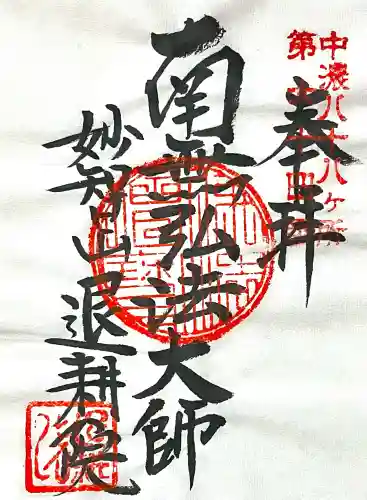 奉拝
中濃八十八ヶ所
第
南無弘法大師
妙智山退耕院